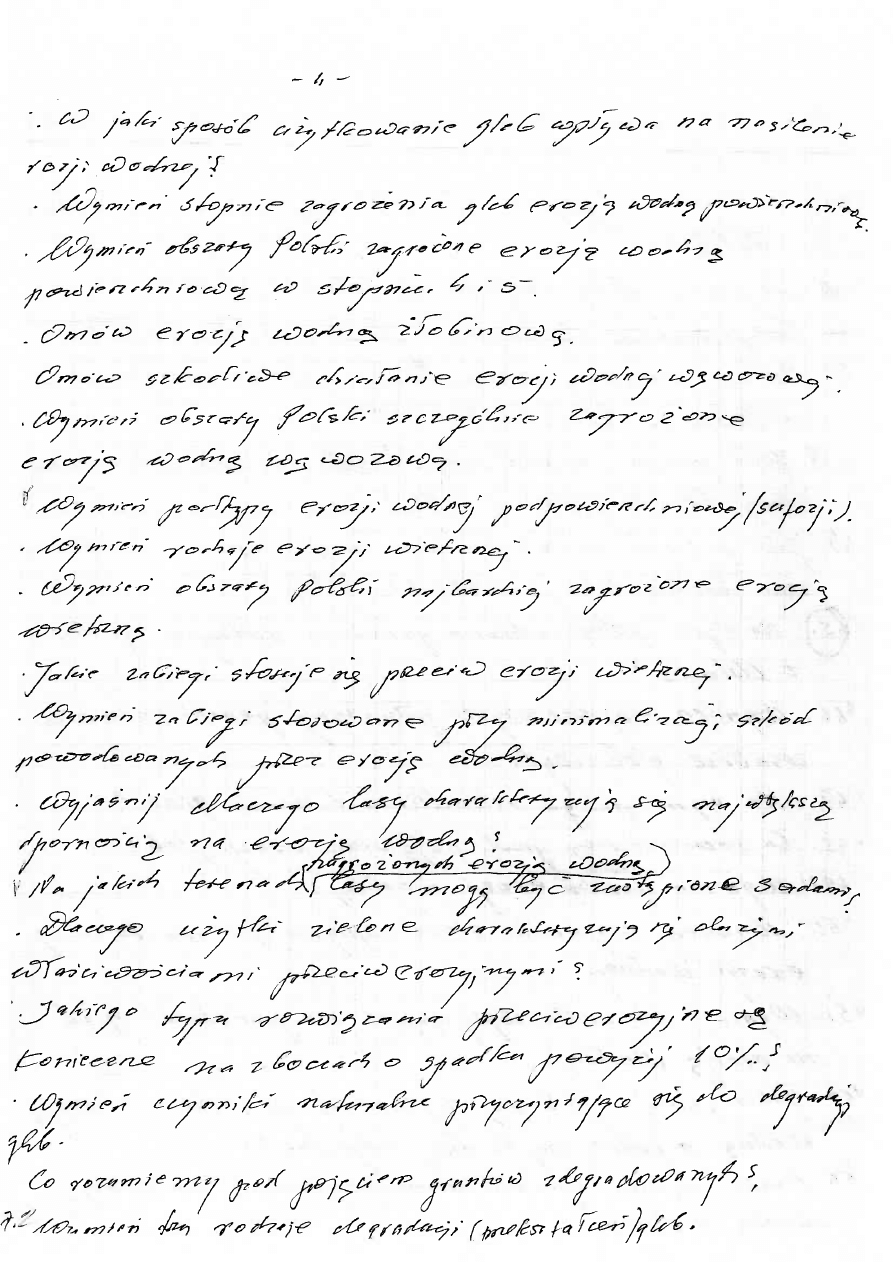 - 4 -
. W jaki sposób użytkowanie gleb wpływa na nasilenie
rozji wodnej?
. Wymień stopnie zagrożenia gleb erozją wodną powierzchniową.
. Wymień obszary Polski zagrożone erozją wodną
powierzchniową w stopniu 4 i 5.
. Omów erozję wodną żłobinową.
Omów szkodliwe działanie erozji wodnej wąwozowej.
. Wymień obszary Polski szczególnie zagrożone
erozją wodną wąwozową.
Wymień podtypy erozji wodnej podpowierzchniowej (sufozji).
. Wymień rodzaje erozji wietrznej.
. Wymień obszary Polski najbardziej zagrożone erozją
wietrzną.
. Jakie zabiegi stosuje się przeciw erozji wietrznej.
. Wymień zabiegi stosowane przy minimalizacji szkód
powodowanych przez erozję wodną.
. Wyjaśnij dlaczego lasy charakteryzują się największą
dpornością na erozję wodną?
zagrożonych erozją wodną
Na jakich terenach lasy mogą być zastąpione sadami?
. Dlaczego użytki zielone charakteryzują się dużymi
właściwościami przeciwerozyjnymi?
. Jakiego typu rozwiązania przeciwerozyjne są
konieczne na zboczach o spadku powyżej 10%?
. Wymień czynniki naturalne przyczyniające się do degradacji
gleb.
Co rozumiemy pod pojęciem gruntów zdegradowanych?
Wymień trzy rodzaje degradacji (przekształceń) gleb.